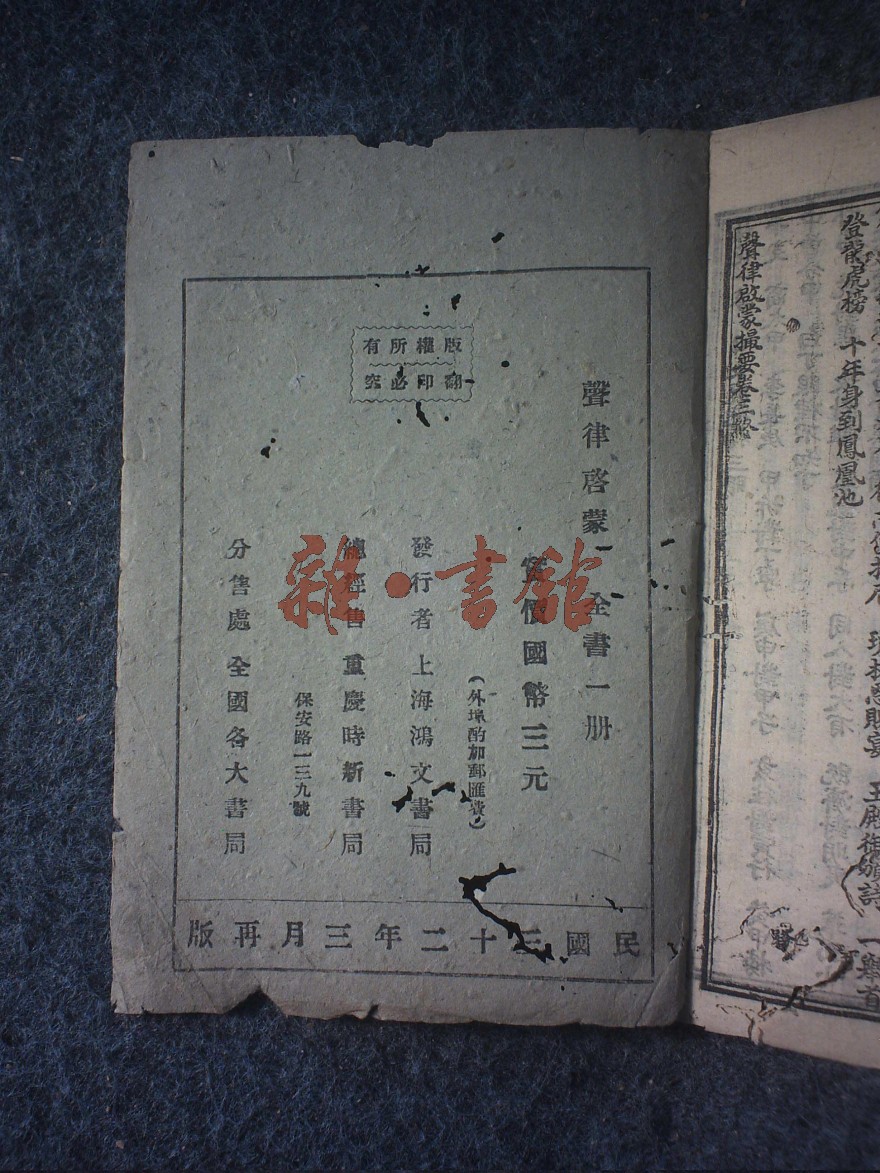 登龍虎榜 十年身到鳳凰池
聲律啟蒙撮要卷三終
版權所有
翻印必究
聲律啓蒙 全書一册
實價國幣三元
(外埠酌加郵匯費)
發行者 上海鴻文書局
總經售 重慶時新書局
保安路一三九號
分售處 全國各大書局
民國三十二年三月再版
雜·書館